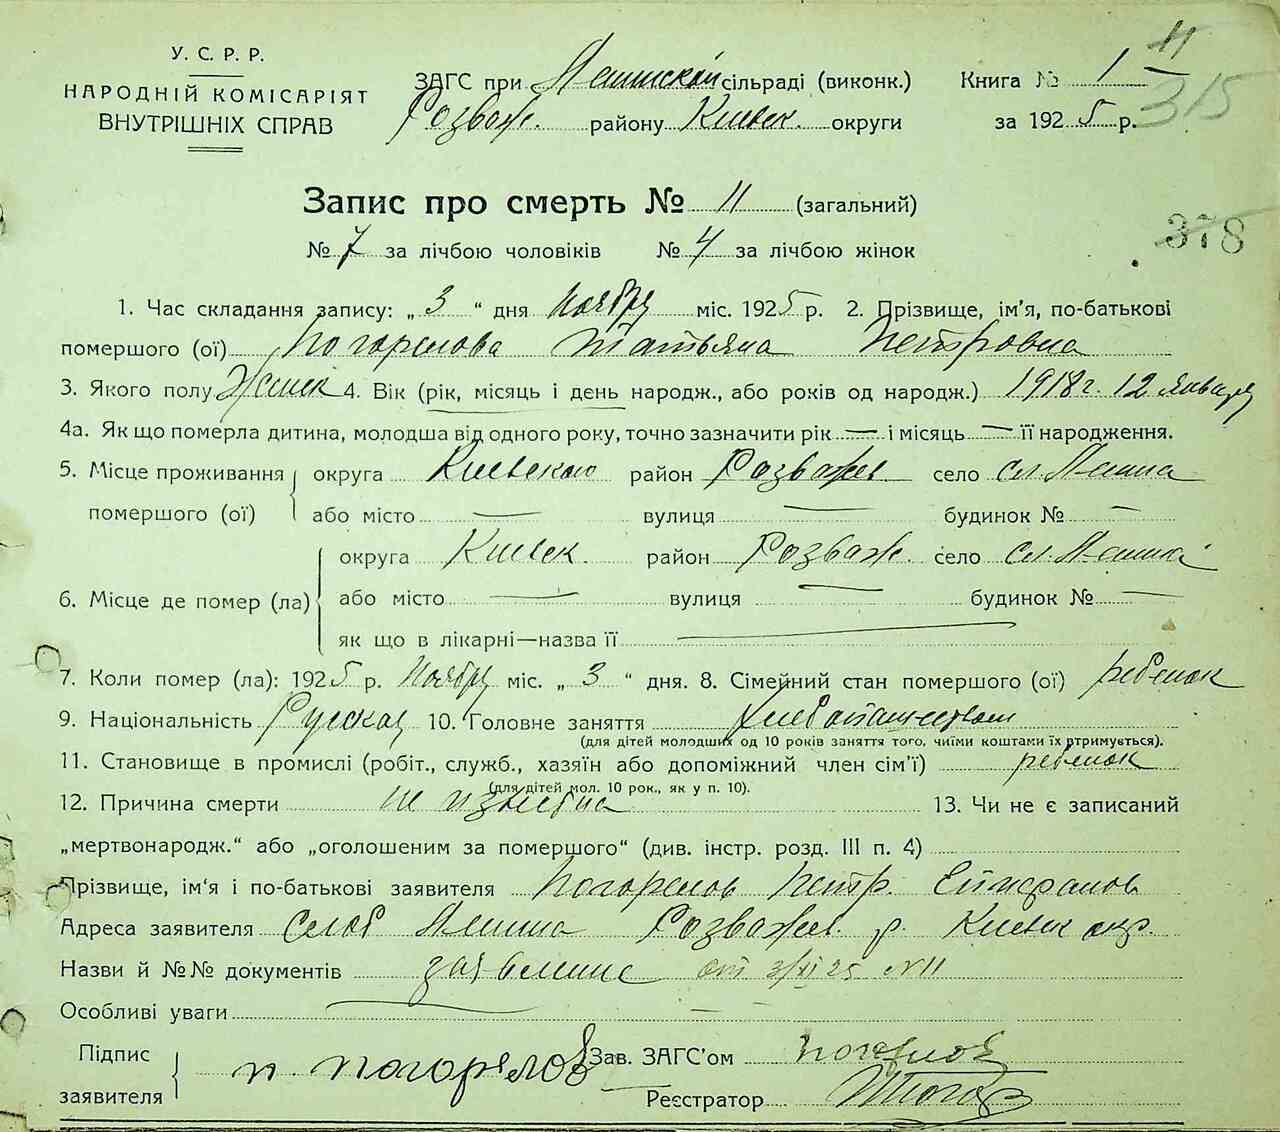 У. С. Р. Р.
НАРОДНІЙ КОМІСАРІЯТ
ВНУТРІШНІХ СПРАВ
ЗАГС при сільраді (виконк.)
Розваж. району Киевск. округи
Книга № 1 11
за 1925 р. 315
Запис про смерть № 11 (загальний)
№ 7 за лічбою чоловіків № 4 за лічбою жінок
378
1. Час складання запису: „ 3 “ дня Ноября міс. 1925 р. 2. Прізвище, ім'я, по-батькові
помершого (ої) Погорелова Татьяна Петровна
3. Якого полу Женск 4. Вік (рік, місяць і день народж., або років од народж.) 1918 г. 12 января
4а. Як що померла дитина, молодша від одного року, точно зазначити рік — і місяць — її народження.
5. Місце проживання округа Киевского район Розважев. село сл.
помершого (ої) або місто — вулиця — будинок № —
округа Киевск район Розваж. село сл.
6. Місце де помер (ла) або місто — вулиця — будинок № —
як що в лікарні—назва її —
7. Коли помер (ла): 1925 р. Ноября міс. „ 3 “ дня. 8. Сімейний стан помершого (ої) ребенок
9. Національність Руская 10. Головне заняття хлебопашеством
(для дітей молодших од 10 років заняття того, чиїми коштами їх втримується).
11. Становище в промислі (робіт., служб., хазяїн або допоміжний член сім'ї) ребенок
(для дітей мол. 10 рок., як у п. 10).
12. Причина смерти не известна 13. Чи не є записаний
„мертвонародж.“ або „оголошеним за помершого“ (див. інстр. розд. III п. 4)
Прізвище, ім'я і по-батькові заявителя Погорелов Петр.
Адреса заявителя Слоб Розважев. р. Киевск окр.
Назви й №№ документів заявление от 3/XI 25 N 11
Особливі уваги —
Підпис
заявителя
п. погорелов
Зав. ЗАГС'ом Погорелов
Реєстратор